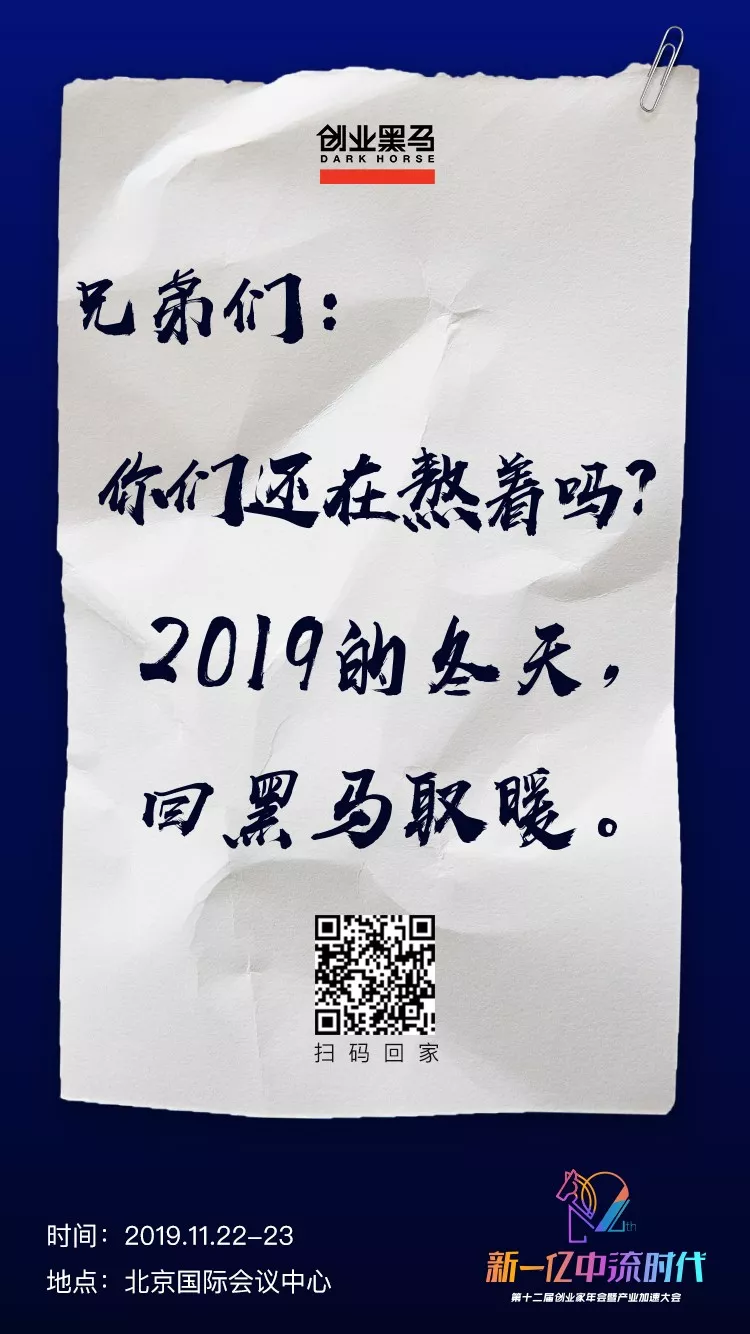 创业黑马
DARK HORSE
兄弟们：
你们还在熬着吗？
2019的冬天，
回黑马取暖。
扫码回家
时间：2019.11.22-23
地点：北京国际会议中心
12th
新一亿中流时代
第十二届创业家年会暨产业加速大会